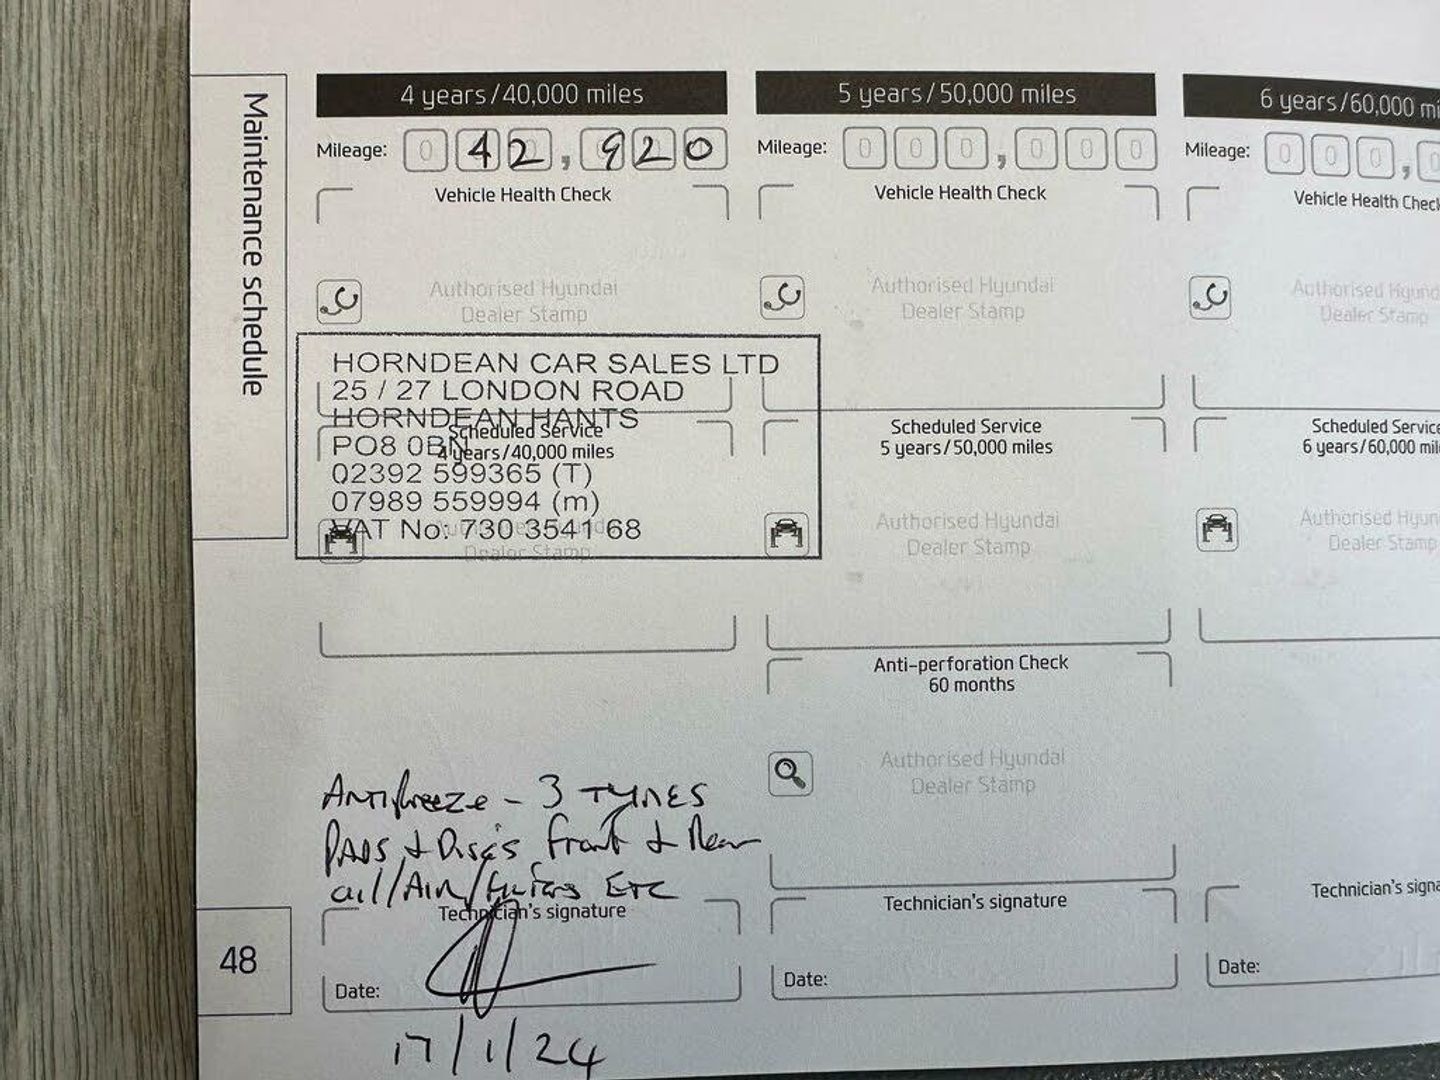 Maintenance schedule
48
4 years/40,000 miles
Mileage: 042,920
Vehicle Health Check
Authorised Hyundai
Dealer Stamp
HORNDEAN CAR SALES LTD
25 / 27 LONDON ROAD
HORNDEAN HANTS
PO8 0BN
02392 599365 (T)
07989 559994 (m)
VAT No: 730 3541 68
Scheduled Service
4 years/40,000 miles
Authorised Hyundai
Dealer Stamp
Antifreeze - 3 TYRES
PADS & Discs Front & Rear
oil/AIR/Filters ETC
Technician's signature
Date:
17/1/24
5 years/50,000 miles
Mileage: 000,000
Vehicle Health Check
Authorised Hyundai
Dealer Stamp
Scheduled Service
5 years/50,000 miles
Authorised Hyundai
Dealer Stamp
Anti-perforation Check
60 months
Authorised Hyundai
Dealer Stamp
Technician's signature
Date:
6 years/60,000 mi
Mileage: 000,0
Vehicle Health Check
Authorised Hyund
Dealer Stamp
Scheduled Service
6 years/60,000 mil
Authorised Hyun
Dealer Stamp
Technician's signa
Date: